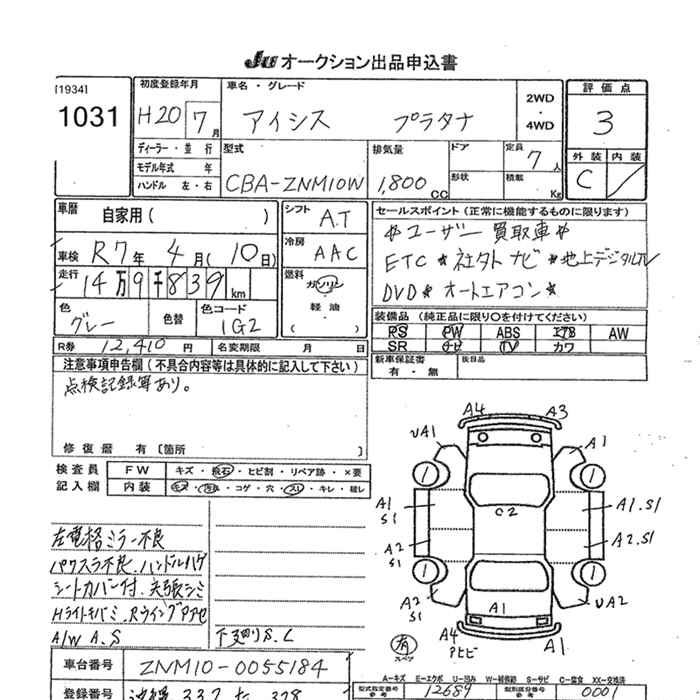 Ju オークション出品申込書
[1934]
1031
初度登録年月
H20 7月
車名・グレード
アイシス プラタナ
2WD
・
4WD
評価点
3
外装 内装
C
ディーラー・並行
モデル年式 年
ハンドル 左・右
型式
CBA-ZNM10W
排気量
1,800cc
ドア
形状
定員
7人
積載 Kg
車暦
自家用( )
車検 R7年 4月(10日)
走行 14万9千839km
色
グレー
色替
色コード
1G2
R券 12,410円 名変期限 月 日
シフト A.T
冷房 AAC
燃料
ガソリン
・
軽油
・
( )
セールスポイント(正常に機能するものに限ります)
*ユーザー買取車*
ETC*社外ナビ*地上デジタルTV
DVD*オートエアコン*
装備品(純正品に限り○を付けてください)
PS PW ABS エアB AW
SR ナビ TV カワ
新車保証書
有・無
後日品
注意事項申告欄(不具合内容等は具体的に記入して下さい)
点検記録簿あり。
修復暦 有〔箇所 〕
検査員
記入欄
FW キズ・飛石・ヒビ割・リペア跡・×要
内装 キズ・汚れ・コゲ・穴・スレ・キレ・破レ
左電格ミラー不良
パワスラ不良.ハンドルハゲ
シートカバー付.天張シミ
Hライトキバミ.
A/W A.S
下廻りS.C
A4 A3
UA1 A1
1 1
A1
S1
C2
A1.S1
A2
S1
A2.S1
1 1
A2
S1
A1
UA2
A4
アヒビ
A1
有
スペア
A-キズ E-エクボ U-凹み W-補修跡 S-サビ C-腐食 XX-交換済
車台番号 ZNM10-0055184
型式指定番号
参考
12689
類別区分番号
参考
0001
登録番号